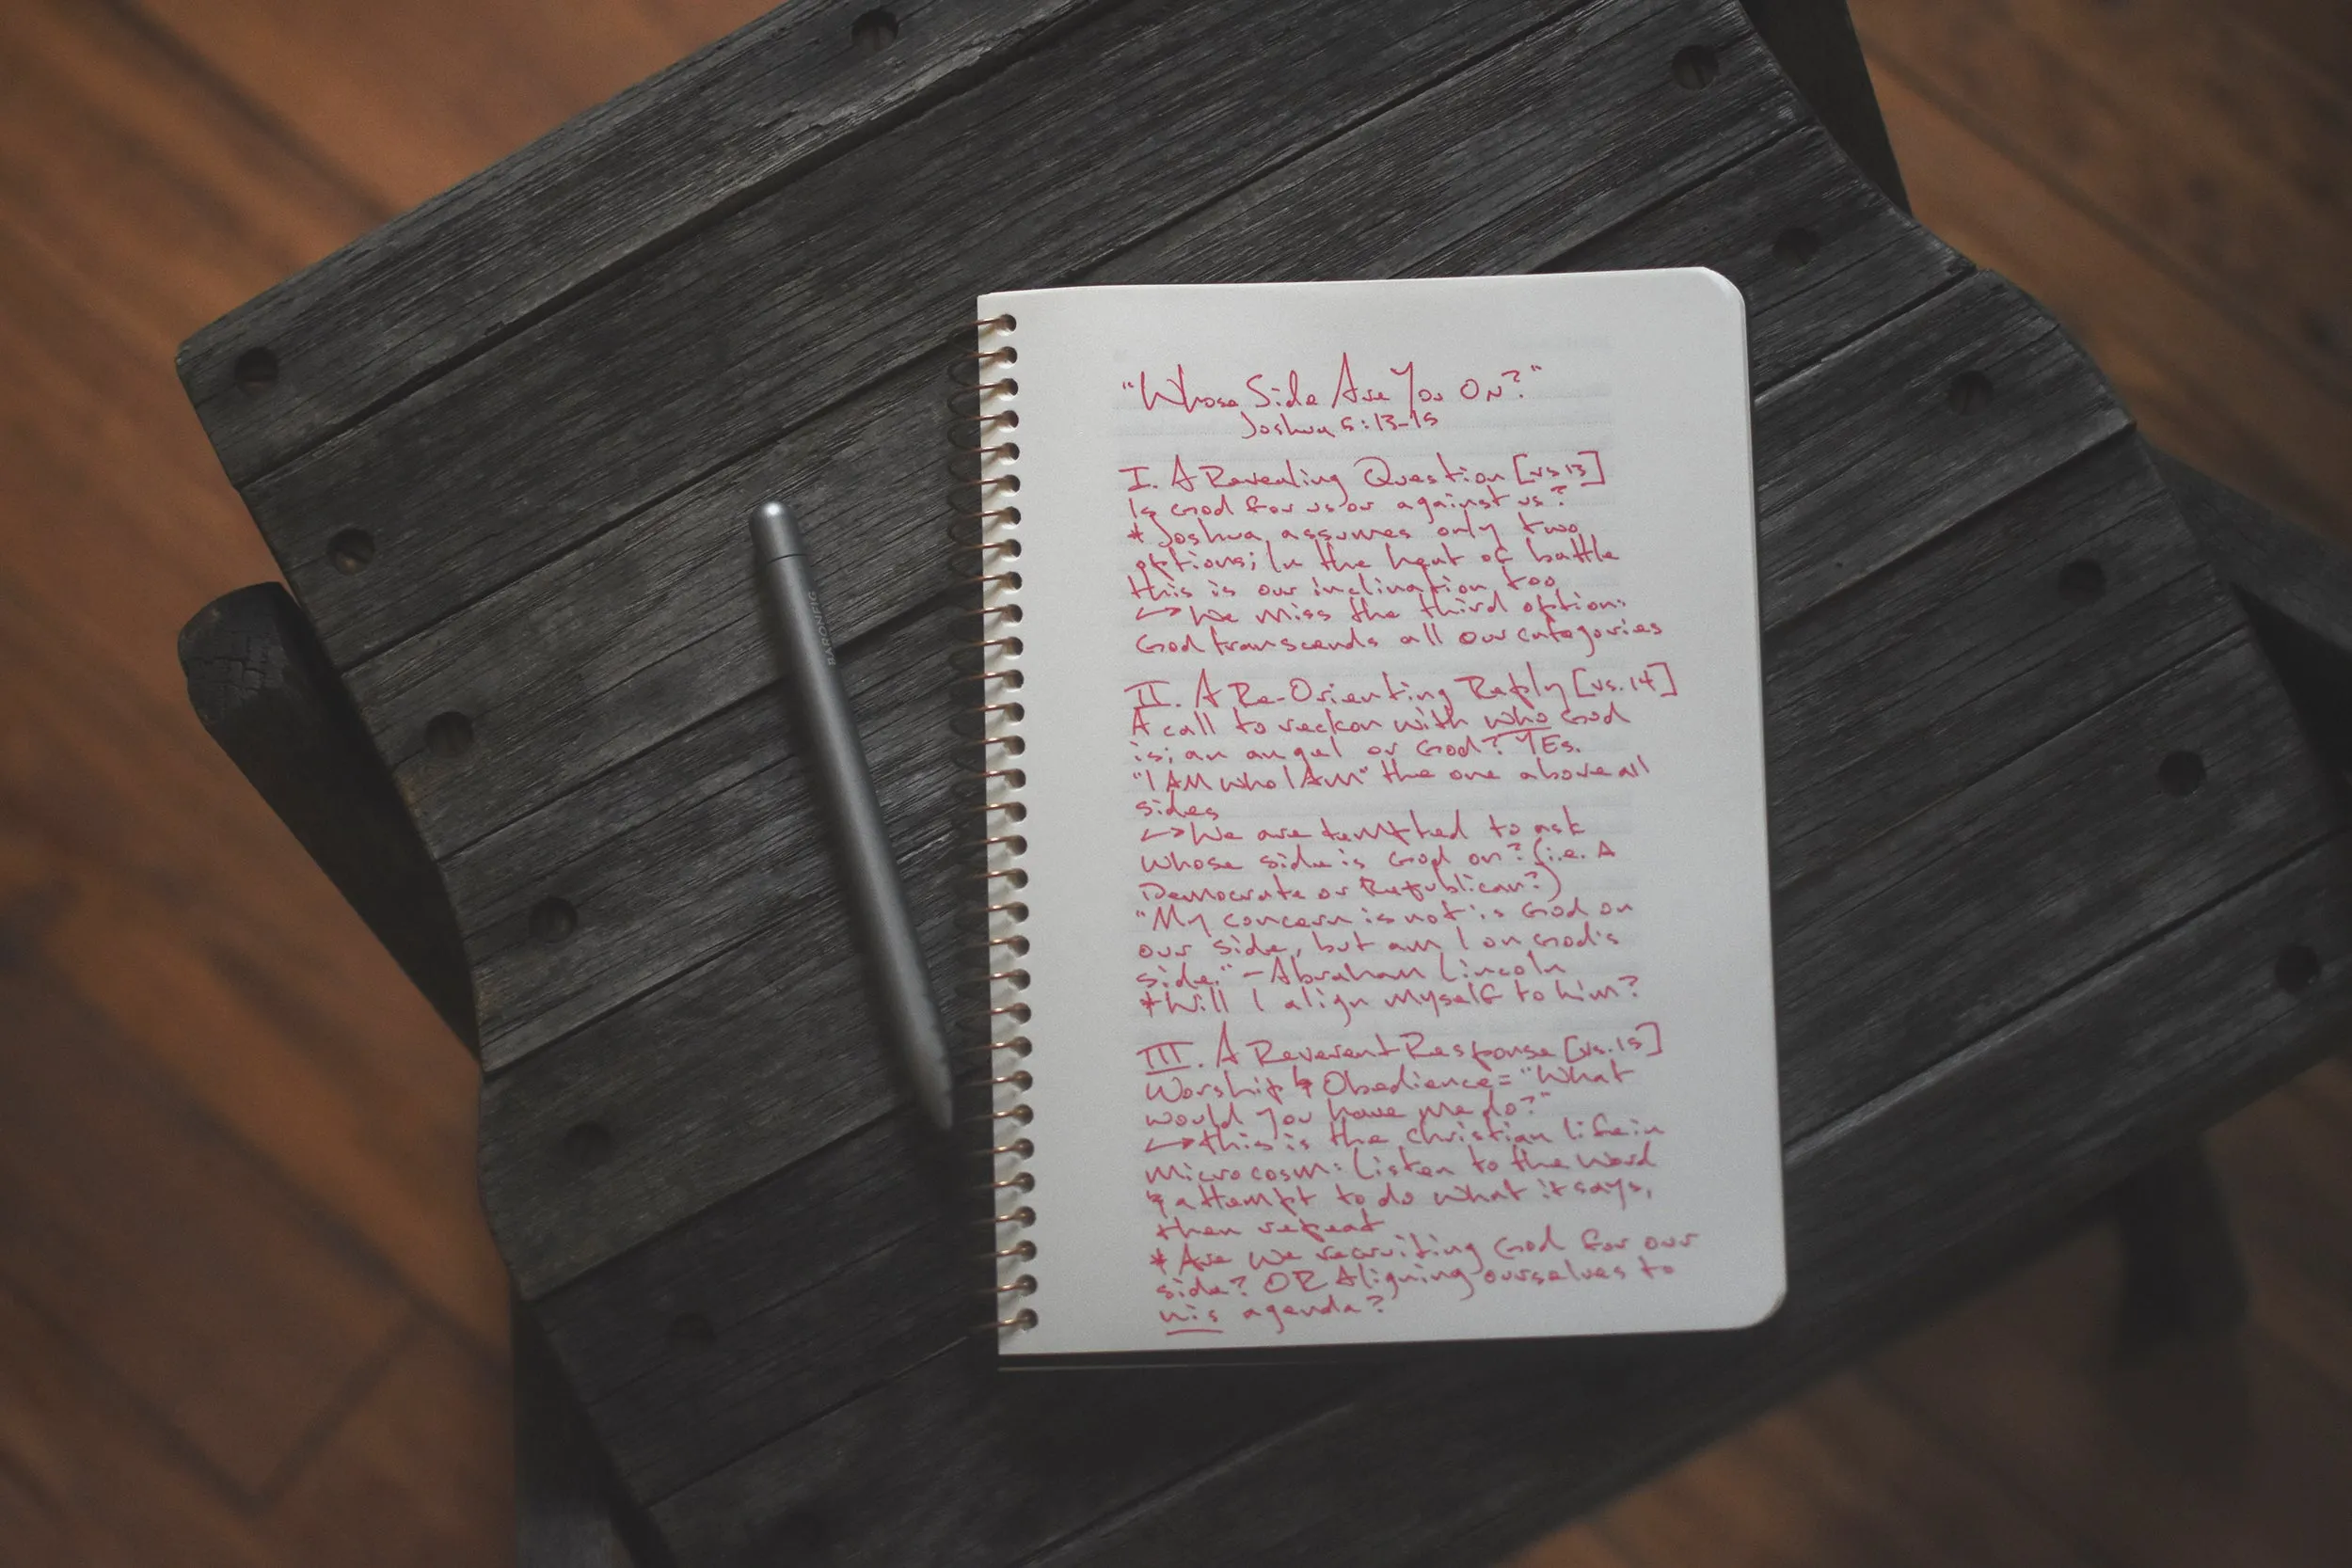 BARONFIG
"Whose Side Are You On?"
Joshua 5:13-15
I. A Revealing Question [vs 13]
Is God for us or against us?
* Joshua assumes only two
options; In the heat of battle
this is our inclination too
↪ We miss the third option:
God transcends all our categories
II. A Re-Orienting Reply [vs. 14]
A call to reckon with who God
is; an angel or God? YES.
"I AM who I AM" the one above all
sides
↪ We are tempted to ask
whose side is God on? (i.e. A
Democrate or Republican?)
"My concern is not is God on
our side, but am I on God's
side." - Abraham Lincoln
* Will I align myself to him?
III. A Reverent Response [vs. 15]
Worship & Obedience = "What
would you have me do?"
↪ this is the christian life in
microcosm: Listen to the Word
& attempt to do what it says,
then repeat
* Are we recruiting God for our
side? OR Aligning ourselves to
His agenda?